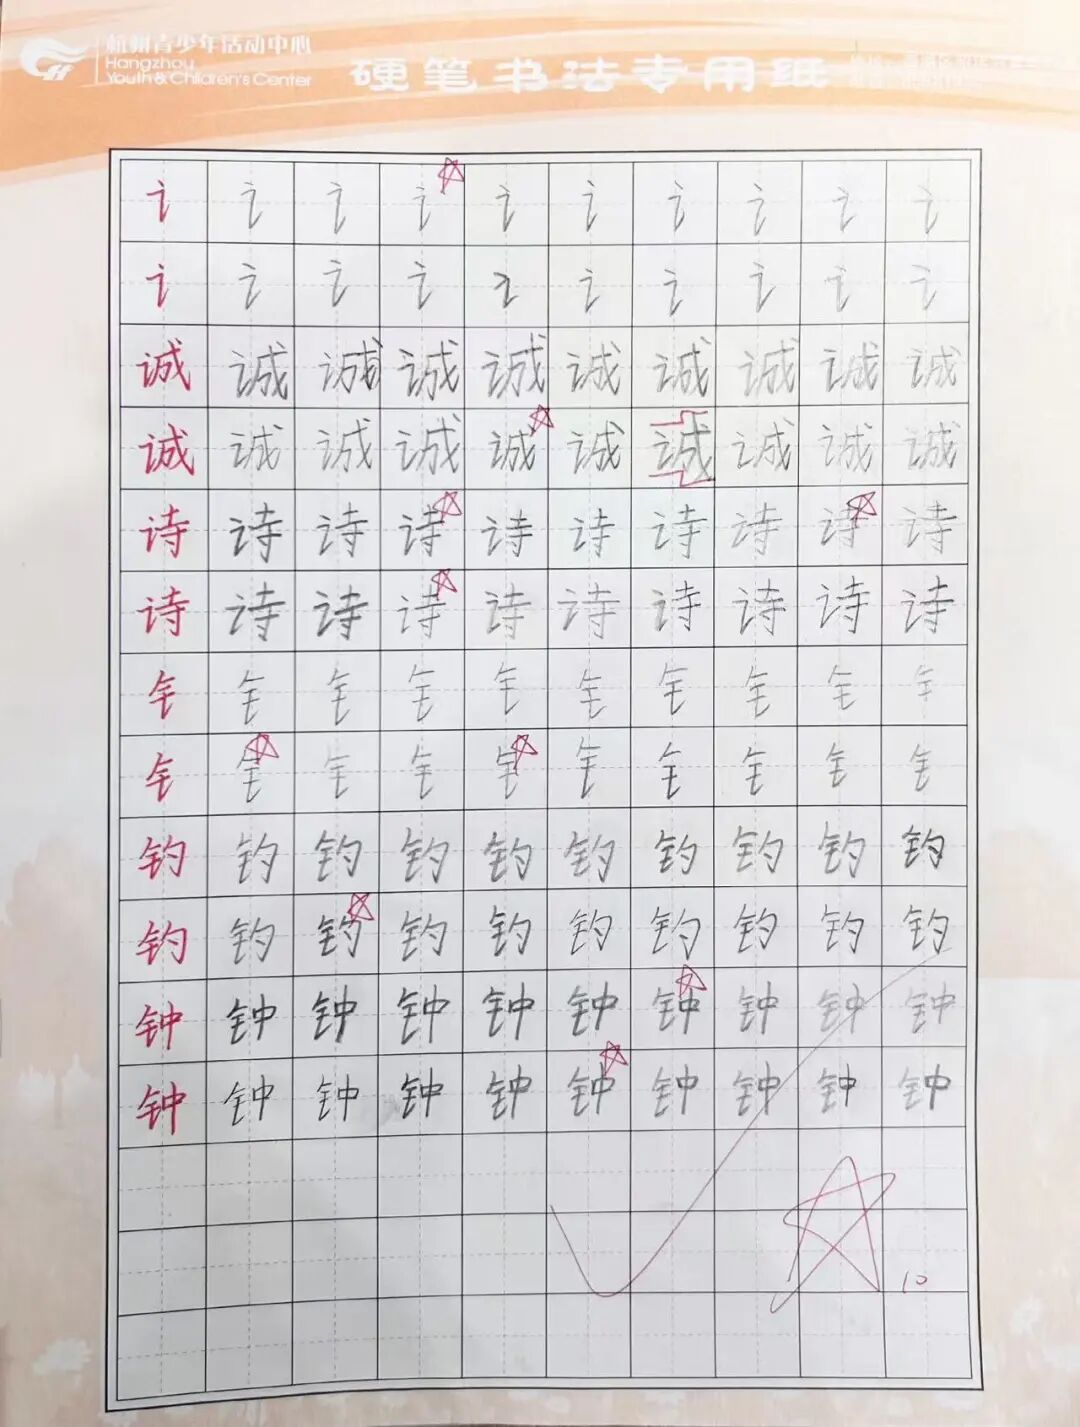 杭州青少年活动中心
Hangzhou
Youth & Children's Center
硬笔书法专用纸
讠讠讠讠讠讠讠讠讠讠
讠讠讠讠讠讠讠讠讠讠
诚诚诚诚诚诚诚诚诚诚
诚诚诚诚诚诚诚诚诚诚
诗诗诗诗诗诗诗诗诗诗
诗诗诗诗诗诗诗诗诗诗
钅钅钅钅钅钅钅钅钅钅
钅钅钅钅钅钅钅钅钅钅
钓钓钓钓钓钓钓钓钓钓
钓钓钓钓钓钓钓钓钓钓
钟钟钟钟钟钟钟钟钟钟
钟钟钟钟钟钟钟钟钟钟
10